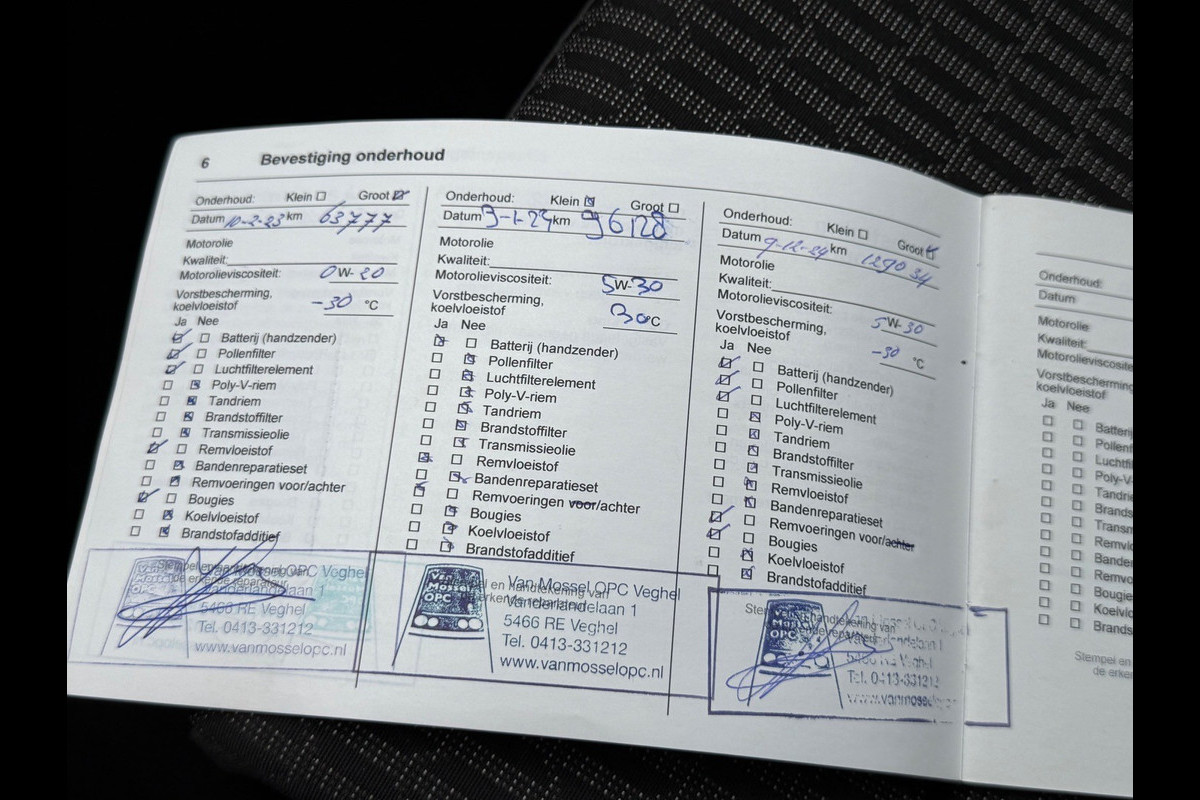 6 Bevestiging onderhoud
Onderhoud: Klein Groot
Datum 10-2-23 km 63777
Motorolie
Kwaliteit:
Motorolieviscositeit: 0W-20
Vorstbescherming,
koelvloeistof -30 °C
Ja Nee
Batterij (handzender)
Pollenfilter
Luchtfilterelement
Poly-V-riem
Tandriem
Brandstoffilter
Transmissieolie
Remvloeistof
Bandenreparatieset
Remvoeringen voor/achter
Bougies
Koelvloeistof
Brandstofadditief
Stempel en handtekening van
de erkende reparateur
Van Mossel OPC
Van Mossel OPC Veghel
Vanderlandelaan 1
5466 RE Veghel
Tel. 0413-331212
www.vanmosselopc.nl
Onderhoud: Klein Groot
Datum 9-1-24 km 96128
Motorolie
Kwaliteit:
Motorolieviscositeit: 5W-30
Vorstbescherming,
koelvloeistof 30 °C
Ja Nee
Batterij (handzender)
Pollenfilter
Luchtfilterelement
Poly-V-riem
Tandriem
Brandstoffilter
Transmissieolie
Remvloeistof
Bandenreparatieset
Remvoeringen voor/achter
Bougies
Koelvloeistof
Brandstofadditief
Stempel en handtekening van
de erkende reparateur
Van Mossel OPC
Van Mossel OPC Veghel
Vanderlandelaan 1
5466 RE Veghel
Tel. 0413-331212
www.vanmosselopc.nl
Onderhoud: Klein Groot
Datum 9-12-24 km 129034
Motorolie
Kwaliteit:
Motorolieviscositeit: 5W-30
Vorstbescherming,
koelvloeistof -30 °C
Ja Nee
Batterij (handzender)
Pollenfilter
Luchtfilterelement
Poly-V-riem
Tandriem
Brandstoffilter
Transmissieolie
Remvloeistof
Bandenreparatieset
Remvoeringen voor/achter
Bougies
Koelvloeistof
Brandstofadditief
Stempel en handtekening van
de erkende reparateur
Van Mossel OPC
5466 RE Veghel
Tel. 0413-331212
www.vanmosselopc
Onderhoud:
Datum
Motorolie
Kwaliteit:
Motorolieviscositeit
Vorstbescherming
koelvloeistof
Ja Nee
Batterij
Pollenf
Luchtfil
Poly-V-
Tandrie
Brands
Transm
Remvlo
Banden
Remvo
Bougies
Koelvlo
Brands
Stempel en
de erken